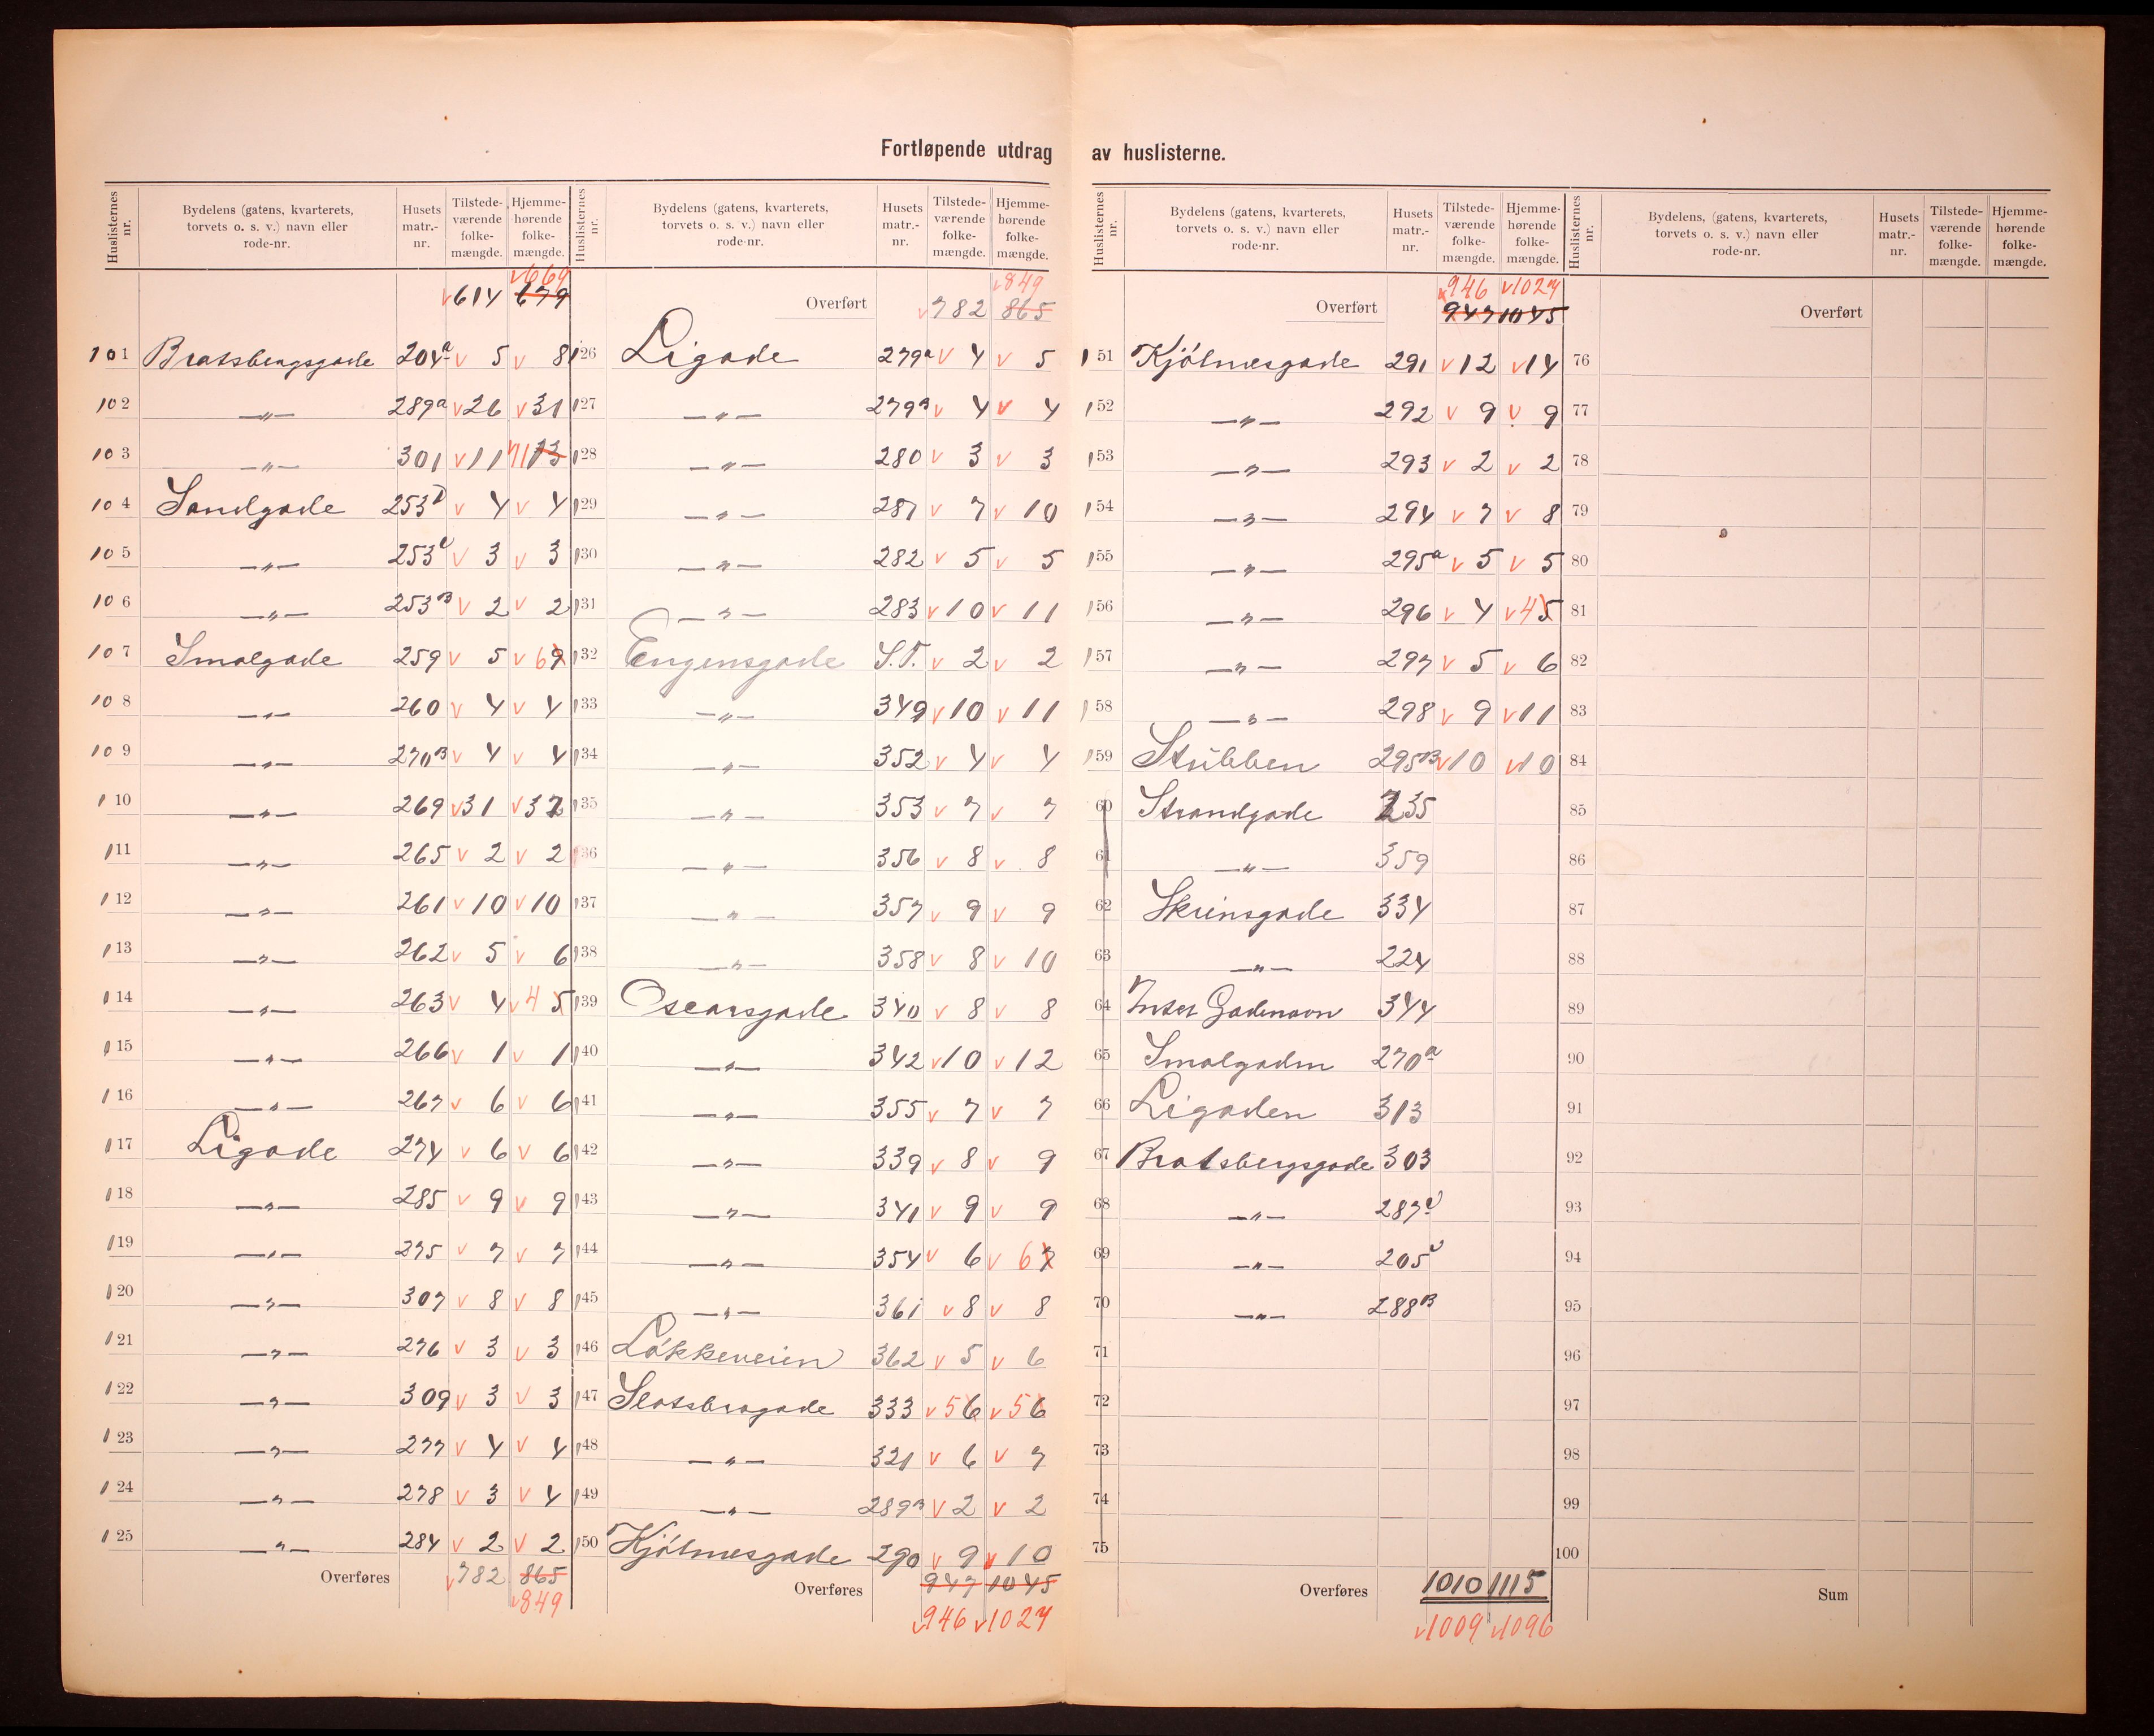 Fortløpende utdrag av huslisterne.
Huslisternes nr. | Bydelens (gatens, kvarterets, torvets o. s. v.) navn eller rode-nr. | Husets matr.-nr. | Tilstede-værende folke-mængde. | Hjemme-hørende folke-mængde.
v669
v614 679
101 Bratsbergsgade 204a v 5 v 8
102 —"— 289a v 26 v 31
103 —"— 301 v 11 v 11 13
104 Sandgade 253D v 4 v 4
105 —"— 253C v 3 v 3
106 —"— 253B v 2 v 2
107 Smalgade 259 v 5 v 6 9
108 —"— 260 v 4 v 4
109 —"— 270B v 4 v 4
110 —"— 269 v 31 v 32
111 —"— 265 v 2 v 2
112 —"— 261 v 10 v 10
113 —"— 262 v 5 v 6
114 —"— 263 v 4 v 4 5
115 —"— 266 v 1 v 1
116 —"— 267 v 6 v 6
117 Ligade 274 v 6 v 6
118 —"— 285 v 9 v 9
119 —"— 275 v 7 v 7
120 —"— 307 v 8 v 8
121 —"— 276 v 3 v 3
122 —"— 309 v 3 v 3
123 —"— 277 v 4 v 4
124 —"— 278 v 3 v 4
125 —"— 284 v 2 v 2
Overføres v782 865
v849
Huslisternes nr. | Bydelens (gatens, kvarterets, torvets o. s. v.) navn eller rode-nr. | Husets matr.-nr. | Tilstede-værende folke-mængde. | Hjemme-hørende folke-mængde.
v849
Overført v782 865
126 Ligade 279a v 4 v 5
127 —"— 279B v 4 v 4
128 —"— 280 v 3 v 3
129 —"— 281 v 7 v 10
130 —"— 282 v 5 v 5
131 —"— 283 v 10 v 11
132 Engensgade S.T. v 2 v 2
133 —"— 349 v 10 v 11
134 —"— 352 v 4 v 4
135 —"— 353 v 7 v 7
136 —"— 356 v 8 v 8
137 —"— 357 v 9 v 9
138 —"— 358 v 8 v 10
139 Oscarsgade 340 v 8 v 8
140 —"— 342 v 10 v 12
141 —"— 355 v 7 v 7
142 —"— 339 v 8 v 9
143 —"— 341 v 9 v 9
144 —"— 354 v 6 v 6 7
145 —"— 361 v 8 v 8
146 Løkkeveien 362 v 5 v 6
147 Slotsbrogade 333 v 5 6 v 5 6
148 —"— 321 v 6 v 7
149 —"— 289B v 2 v 2
150 Kjölnesgade 290 v 9 v 10
Overføres 947 1045
v946 v1027
Huslisternes nr. | Bydelens (gatens, kvarterets, torvets o. s. v.) navn eller rode-nr. | Husets matr.-nr. | Tilstede-værende folke-mængde. | Hjemme-hørende folke-mængde.
v946 v1027
Overført 947 1045
151 Kjölnesgade 291 v 12 v 14
152 —"— 292 v 9 v 9
153 —"— 293 v 2 v 2
154 —"— 294 v 7 v 8
155 —"— 295a v 5 v 5
156 —"— 296 v 4 v 4 5
157 —"— 297 v 5 v 6
158 —"— 298 v 9 v 11
159 Stubben 295B v 10 v 10
60 Strandgade 235
61 —"— 359
62 Skrinsgade 334
63 —"— 224
64 Intet Gadenavn 344
65 Smalgaden 270a
66 Ligaden 313
67 Bratsbergsgade 303
68 —"— 287C
69 —"— 205C
70 —"— 288B
71
72
73
74
75
Overføres 1010 1115
v1009 v1096
Huslisternes nr. | Bydelens, (gatens, kvarterets, torvets o. s. v.) navn eller rode-nr. | Husets matr.-nr. | Tilstede-værende folke-mængde. | Hjemme-hørende folke-mængde.
Overført
76
77
78
79
80
81
82
83
84
85
86
87
88
89
90
91
92
93
94
95
96
97
98
99
100
Sum